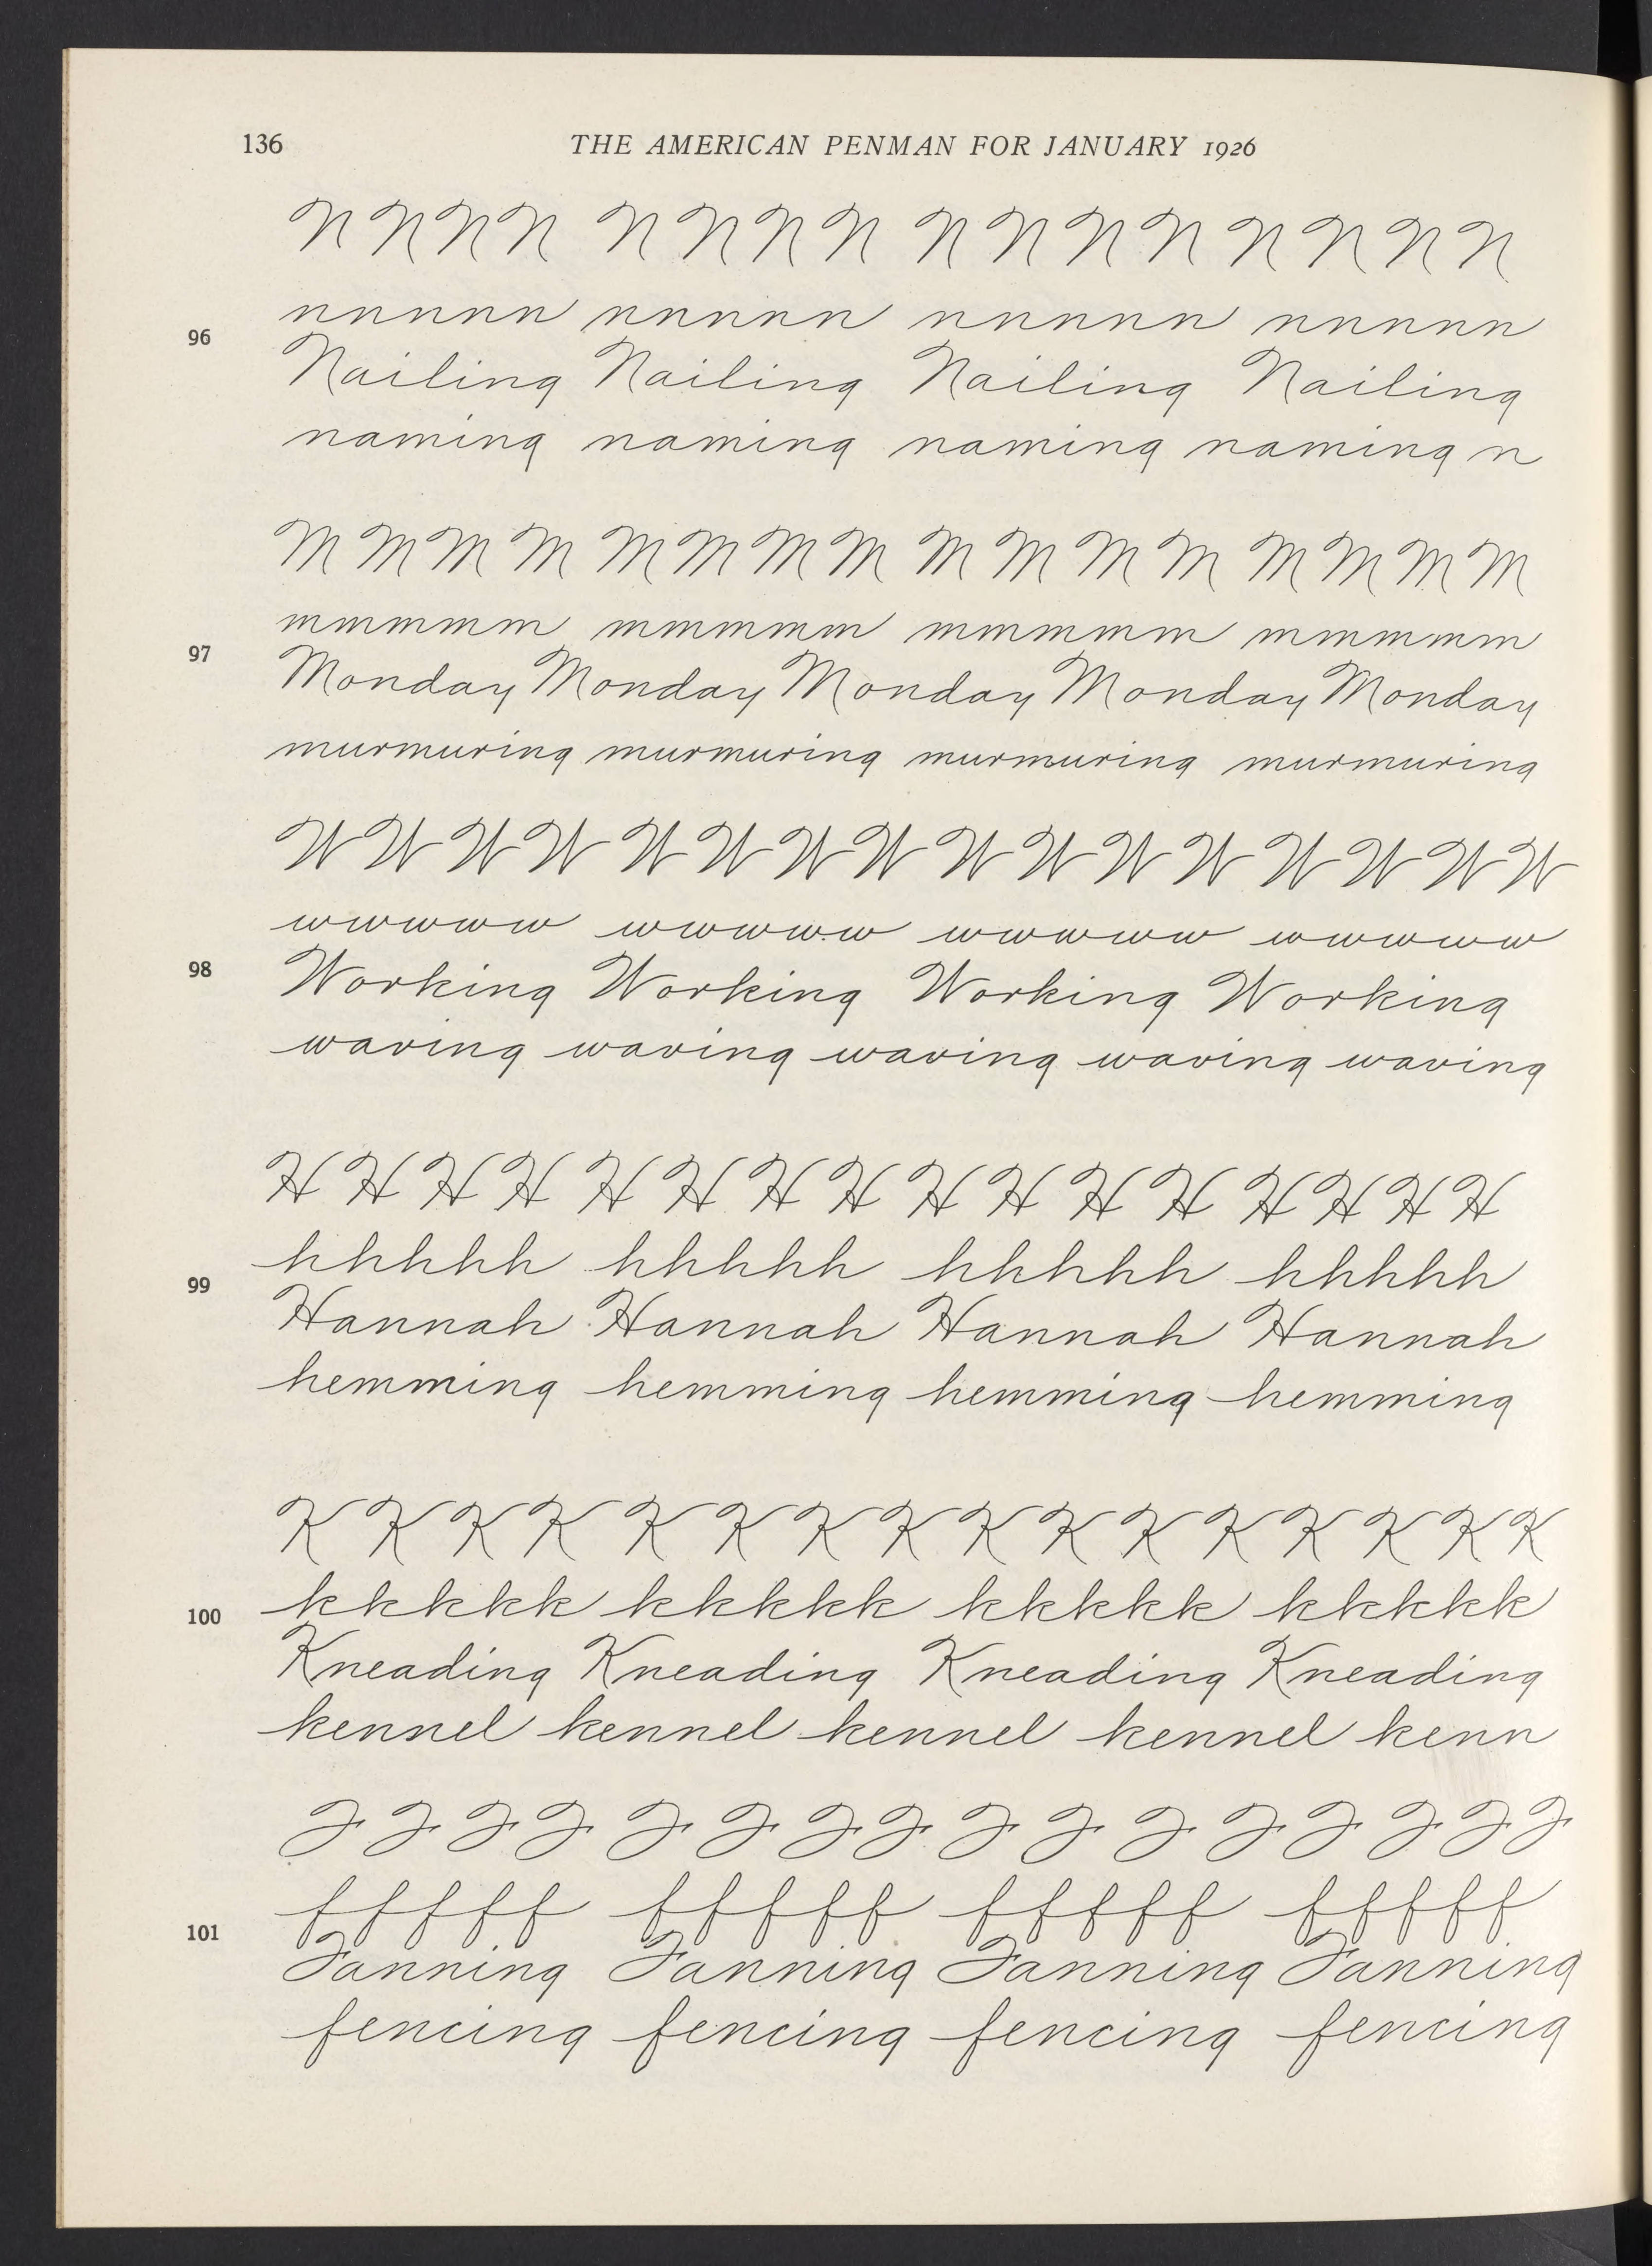 136 THE AMERICAN PENMAN FOR JANUARY 1926
N N N N N N N N N N N N N N N N
nnnnn nnnnn nnnnn nnnnn
96
Nailing Nailing Nailing Nailing
naming naming naming naming n
M M M M M M M M M M M M M M M M
mmmmm mmmmm mmmmm mmmmm
97
Monday Monday Monday Monday Monday
murmuring murmuring murmuring murmuring
W W W W W W W W W W W W W W W W
wwwww wwwww wwwww wwwww
98
Working Working Working Working
waving waving waving waving waving
H H H H H H H H H H H H H H H H
hhhhh hhhhh hhhhh hhhhh
99
Hannah Hannah Hannah Hannah
hemming hemming hemming hemming
K K K K K K K K K K K K K K K K
100 kkkkk kkkkk kkkkk kkkkk
Kneading Kneading Kneading Kneading
kennel kennel kennel kennel kenn
F F F F F F F F F F F F F F F F
fffff fffff fffff fffff
101
Fanning Fanning Fanning Fanning
fencing fencing fencing fencing